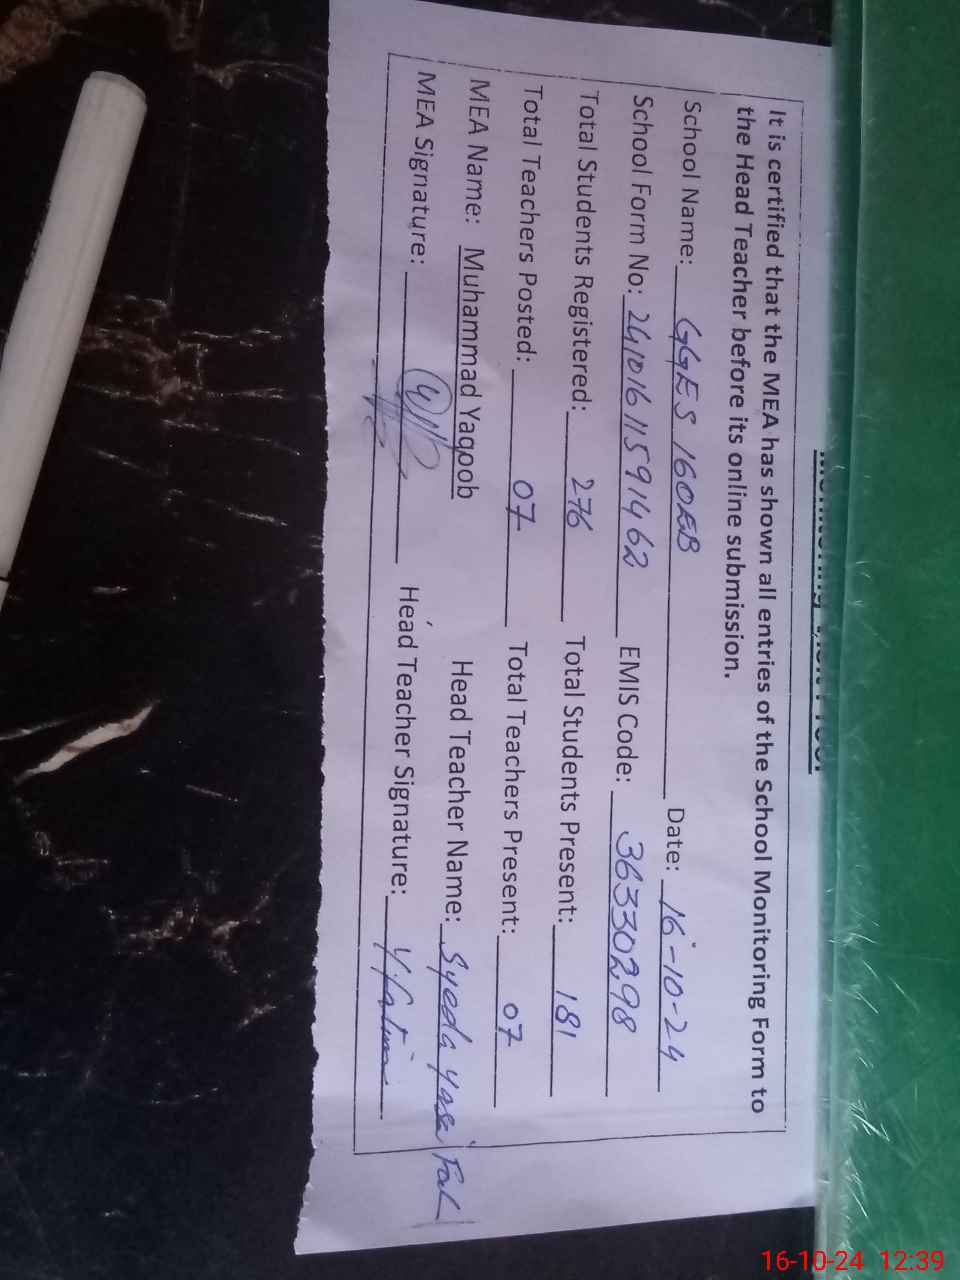 Monitoring Visit Proof
It is certified that the MEA has shown all entries of the School Monitoring Form to
the Head Teacher before its online submission.
School Name: GGES 160EB Date: 16-10-24
School Form No: 24101611591462 EMIS Code: 36330298
Total Students Registered: 276 Total Students Present: 181
Total Teachers Posted: 07 Total Teachers Present: 07
MEA Name: Muhammad Yaqoob Head Teacher Name: Syeda
MEA Signature: Head Teacher Signature:
16-10-24 12:39